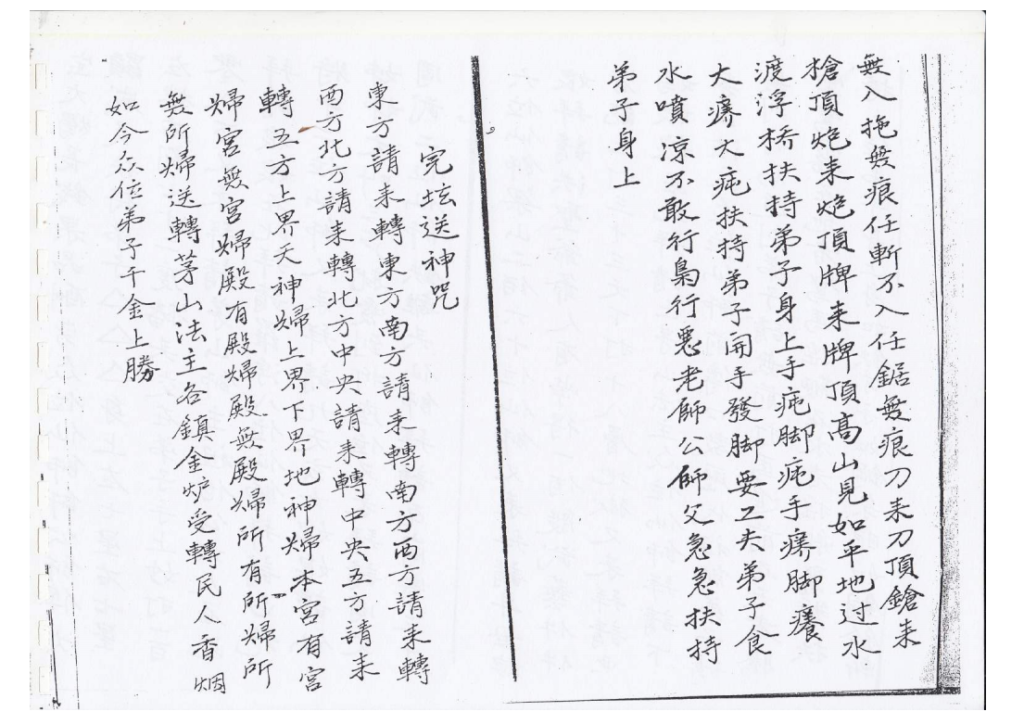 無入拖毀痕任斬不入任鋸毀痕刀来刀頂鎗来
槍頂炮来炮頂牌来牌頂高山見如平地过水
渡浮橋扶持弟子身上手疤脚疤手癢脚癢
大癢大疤扶持弟子開手發脚要工夫弟子食
水噴凉不敢行梟行惡老師公師父急急扶持
弟子身上
完坛送神咒
東方請来轉東方南方請来轉南方西方請来轉
西方北方請来轉北方中央請来轉中央五方請来
轉五方上界天神婦上界下界地神婦本宮有宮
婦宮無宮婦殿有殿婦殿無殿婦所有所婦所
無所婦送轉茅山法主各鎮金炉受轉民人香烟
如今众位弟子千金上勝